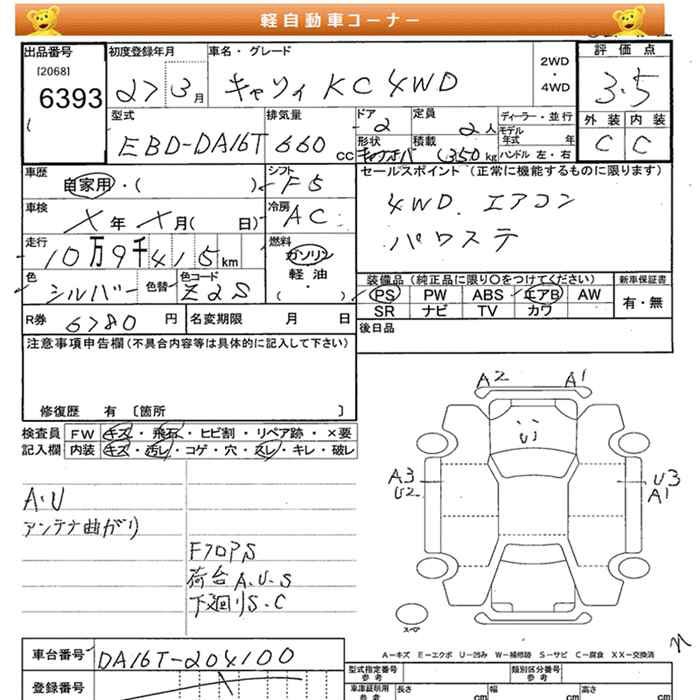 軽自動車コーナー
出品番号 初度登録年月 車名・グレード 評価点
[2068] 2WD
6393 27 3月 キャリィ KC 4WD ・ 3.5
4WD
型式 排気量 ドア 定員 ディーラー・並行 外装 内装
EBD-DA16T 660 CC 2 2人 モデル年式 年 C C
形状 積載 350kg ハンドル 左・右
車歴 シフト セールスポイント (正常に機能するものに限ります)
自家用・( ) F5 4WD. エアコン
車検 冷房 パワステ
X年 X月( 日) AC
走行 燃料
10万9千415km ガソリン
軽油
色 色替 色コード 装備品 (純正品に限り○をつけてください) 新車保証書
シルバー Z2S ( ・ ) PS PW ABS エアB AW 有・無
SR ナビ TV カワ
R券 6780円 名変期限 月 日 後日品
注意事項申告欄 (不具合内容等は具体的に記入して下さい)
修復歴 有 〔箇所 〕
検査員 FW キズ・飛石・ヒビ割・リペア跡・×要
記入欄 内装 キズ・汚レ・コゲ・穴・スレ・キレ・破レ
A2 A1
A3 U3
U2 A1
A・U
アンテナ曲がり
FフロアS
荷台 A.U.S
下廻りS.C
スペア
A-キズ E-エクボ U-凹み W-補修跡 S-サビ C-腐食 XX-交換済
車台番号 DA16T-204100 型式指定番号 類別区分番号
参考 参考
登録番号 車庫証明用 長さ 幅 高さ
参考 cm cm cm